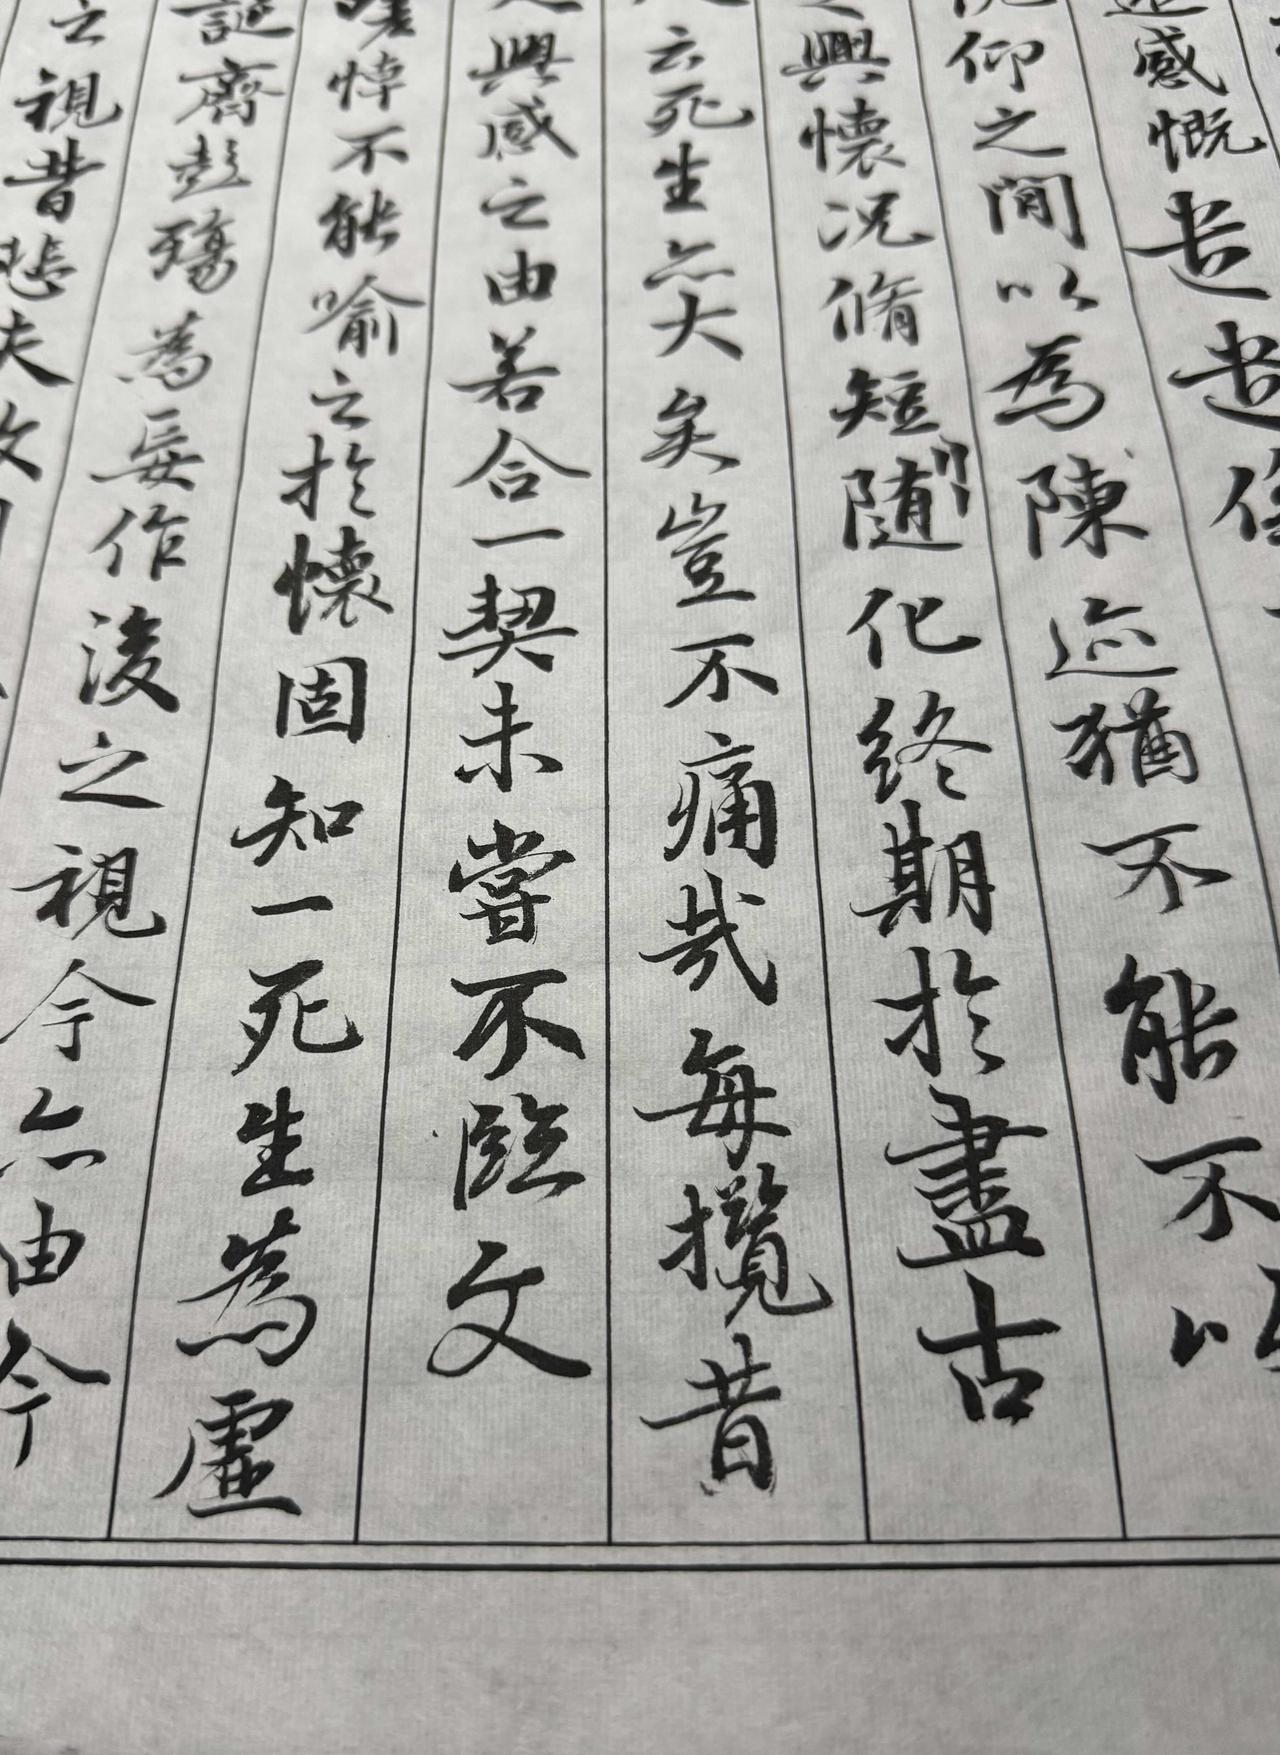 感慨
仰之間以為陳迹猶不能不以
之興懷況脩短随化終期於盡古
人云死生亦大矣豈不痛哉每攬昔
人興感之由若合一契未嘗不臨文
嗟悼不能喻之於懷固知一死生為虛
誕齊彭殤為妄作後之視今亦由今
之視昔悲夫故